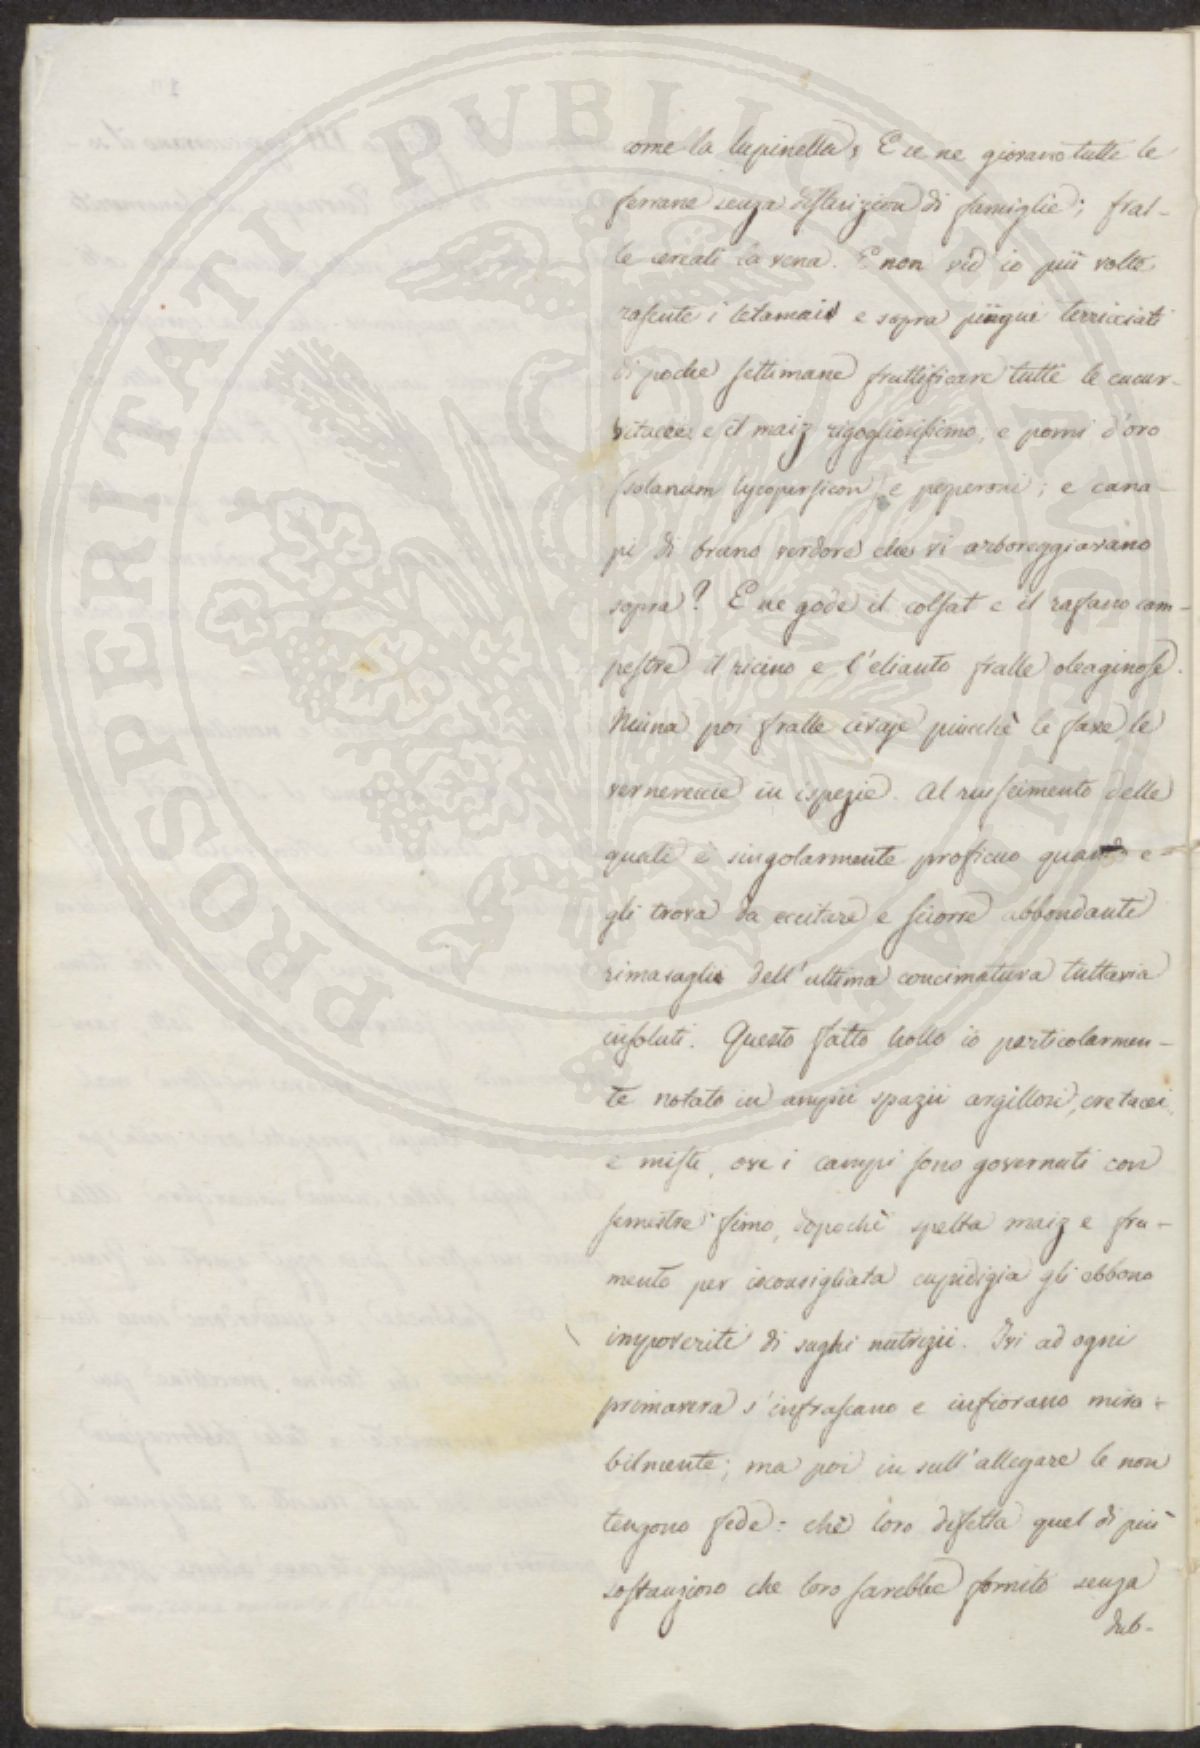 come la lupinella, E se ne giovano tutte le
ferrane senza distinzion di famiglie; fral-
le cereali la vena. E non vid' io più volte
rasente i letamai e sopra pingui terricciati
di poche settimane fruttificare tutte le cucur-
bitacee e il maiz rigogliosissimo, e pomi d'oro
(solanum lycopersicon) e peperoni; e cana-
pi di bruno verdore che vi arboreggiavano
sopra? E ne gode il colsat e il rafano cam-
pestre il ricino e l'elianto fralle oleaginose.
Niuna poi fralle civaje piucchè le fave, le
vernerecce in ispezie. Al riuscimento delle
quali è singolarmente proficuo quando e-
gli trova da eccitare e sciorre abbondanti
rimasugli dell'ultima concimatura tuttavia
insoluti. Questo fatto hollo io particolarmen-
te notato in ampii spazii argillosi, cretacei
e misti, ove i campi sono governati con
semestre fimo, dopochè spelta maiz e fru-
mento per isconsigliata cupidigia gli ebbono
impoveriti di sughi nutrizii. Ivi ad ogni
primavera s'infrascano e infiorano mira-
bilmente; ma poi in sull'allegare le non
tengono fede: chè loro difetta quel di più
sostanzioso che loro sarebbe fornito senza
dub-
PROSPERITATI PUBLICAE AUGENDAE